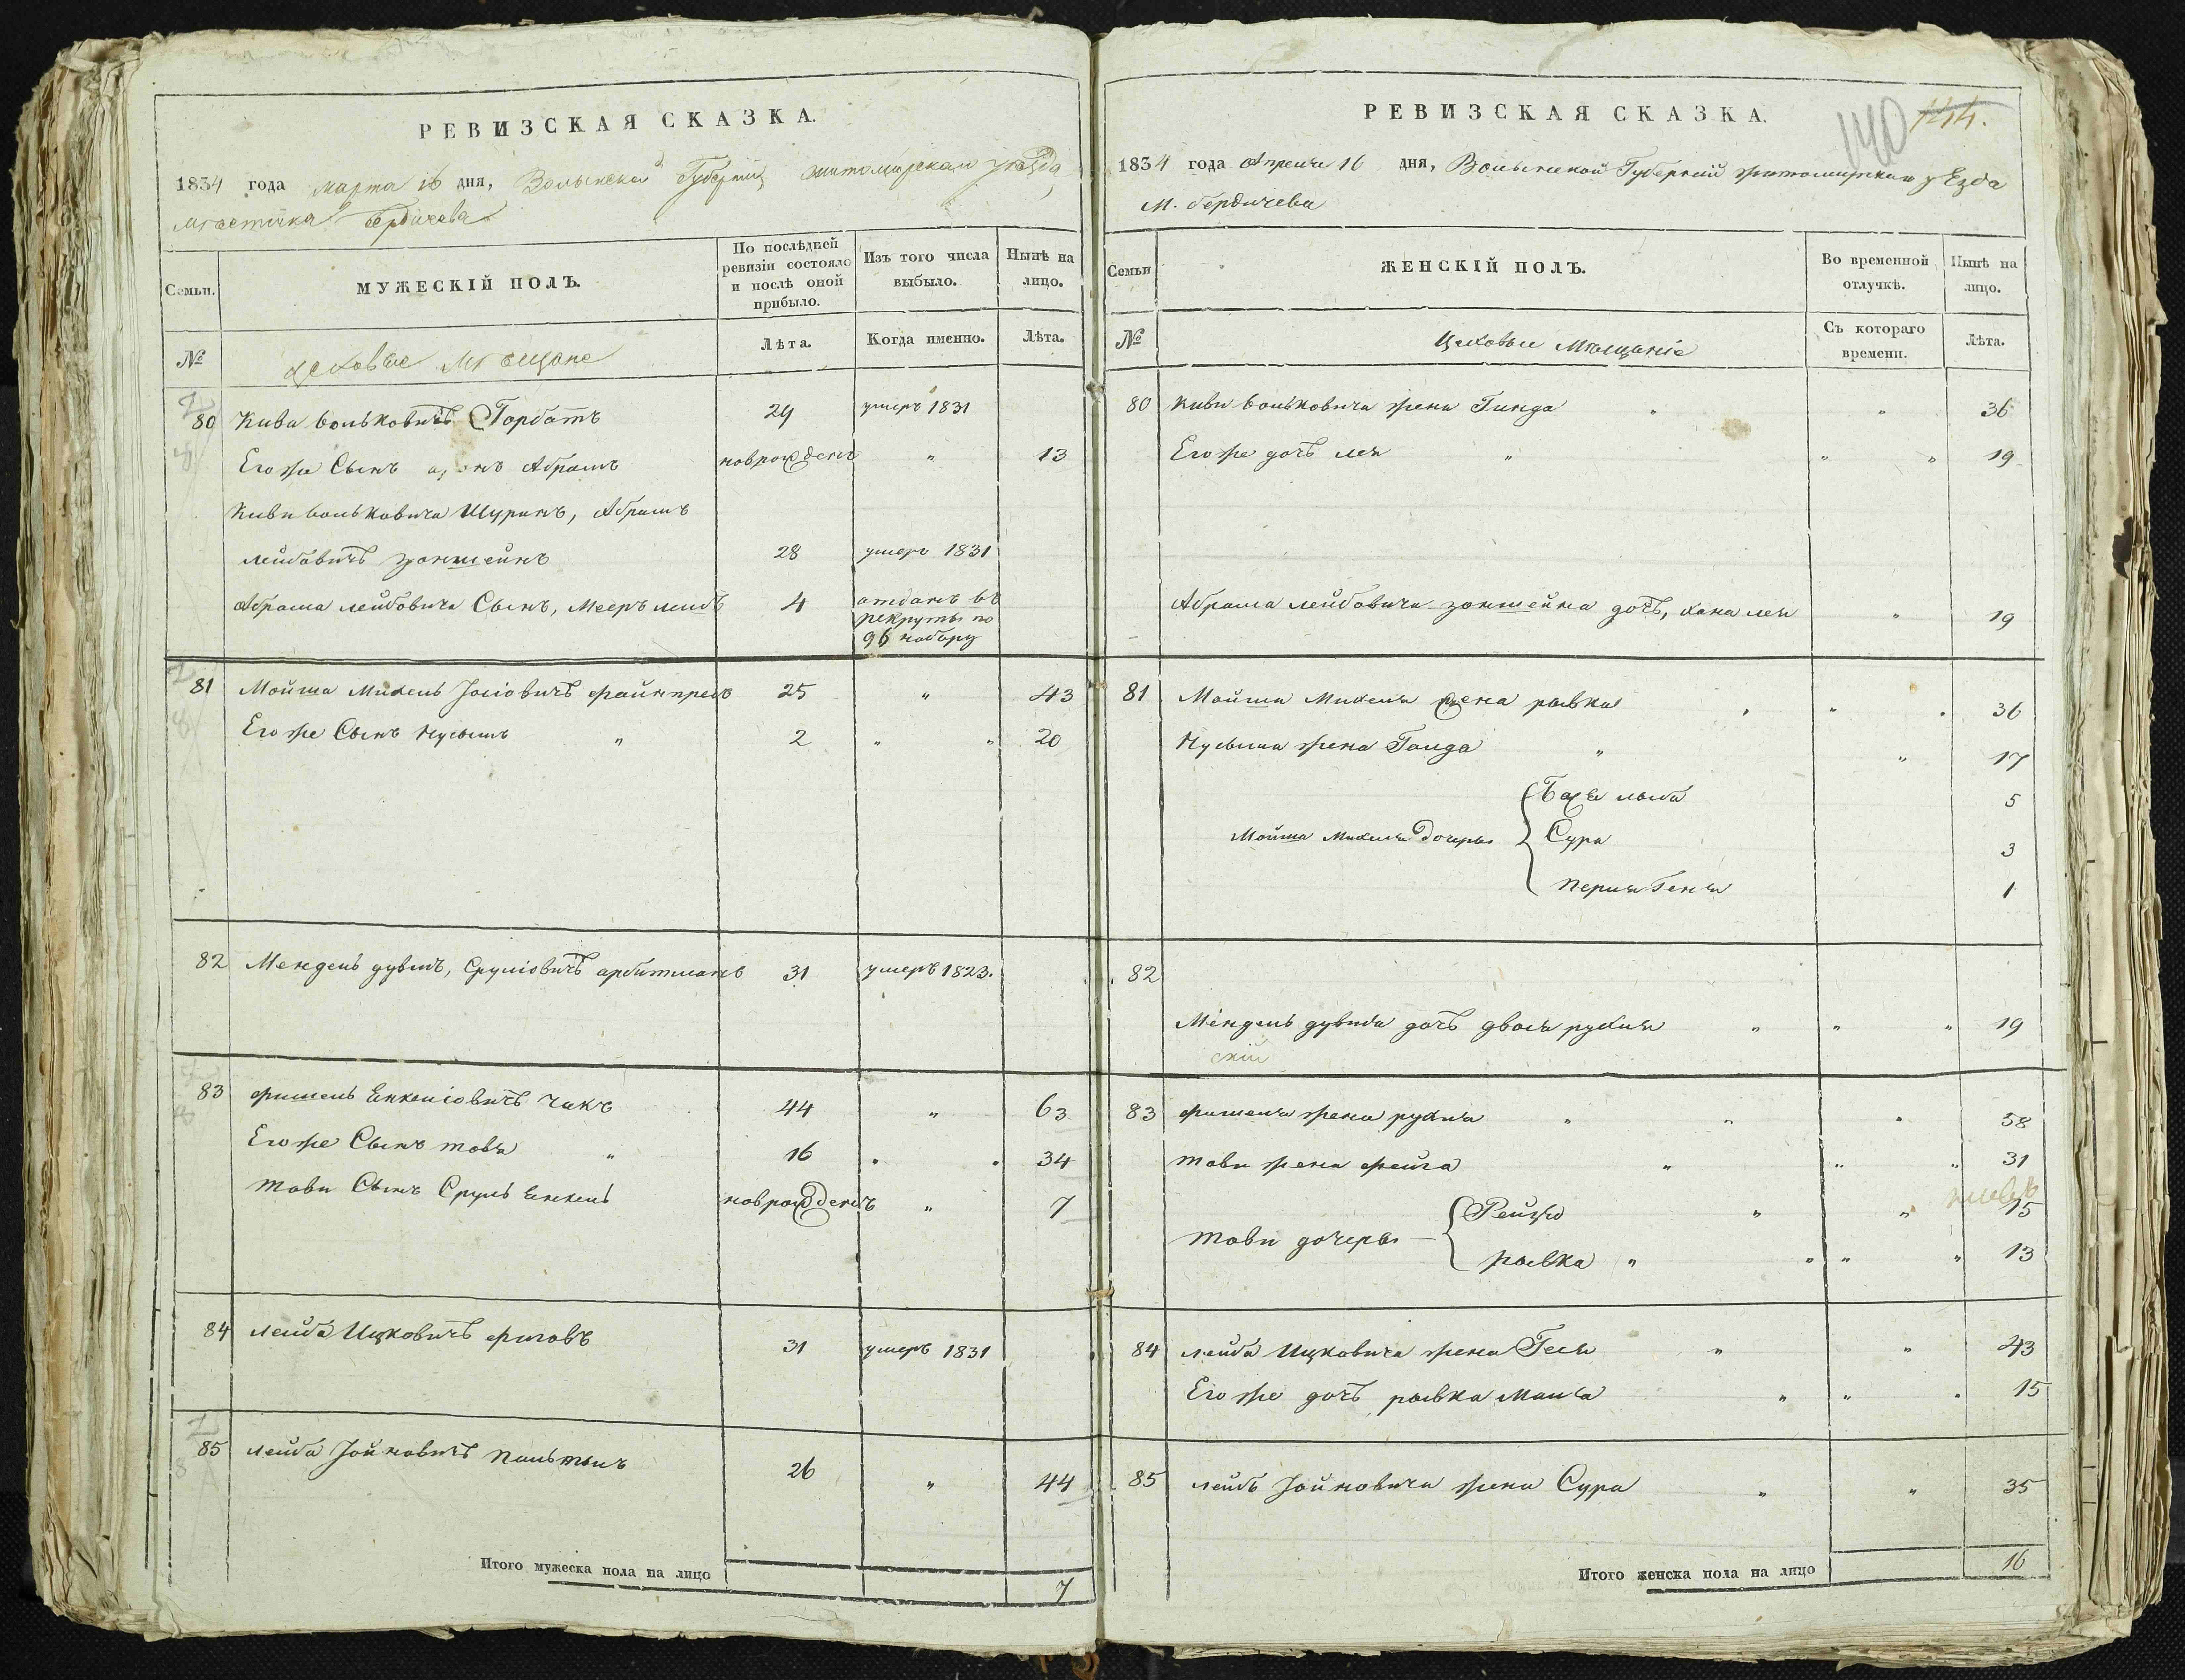 РЕВИЗСКАЯ СКАЗКА.
1834 года марта 16 дня, Волынской Губерніи житомирскаго уѣзда
мѣстечка бердичева
Семьи.
МУЖЕСКІЙ ПОЛЪ.
По послѣдней ревизіи состояло и послѣ оной прибыло.
Изъ того числа выбыло.
Нынѣ на лицо.
№
цеховые мѣщане
Лѣта.
Когда именно.
Лѣта.
80 Кива вольковичъ Горбатъ 29 умеръ 1831
Его же Сынъ Абрамъ новрожденъ " 13
Киви вольковича Шуринъ, Абрамъ
лейбовичъ зонштейнъ 28 умеръ 1831
Абрама лейбовича Сынъ, Мееръ лейбъ 4 отданъ въ
рекруты по
96 набору
81 Мойша Михель Іосіовичъ файнпрехъ 25 " 43
Его же Сынъ Нусымъ " 2 " " 20
82 Мендель дувидъ, Сруліовичъ арбитманъ 31 умеръ 1823.
83 фишель Енкеліовичъ Чакъ 44 " 63
Его же Сынъ това " 16 " " 34
Тови Сынъ Сруль Енкель новрожденъ " 7
84 лейба Ицковичъ фиговъ 31 умеръ 1831
85 лейба Іойновичъ 26 " 44
Итого мужеска пола на лицо 7
РЕВИЗСКАЯ СКАЗКА.
140 144.
1834 года Апреля 16 дня, Волынской Губерніи житомирскаго уѣзда
М. бердичева
Семьи
ЖЕНСКІЙ ПОЛЪ.
Во временной отлучкѣ.
Нынѣ на лицо.
№
Цеховые Мѣщаніе
Съ котораго времени.
Лѣта.
80 Киви вольковича жена Гинда " " 36
Его же дочь лея " " " 19
Абрама лейбовича зонштейна дочь, хана лея " 19
81 Мойши Михеля жена рывка " " " 36
Нусыма жена Голда " " 17
Бася 5
Мойша Михеля дочеры Сура 3
перля Геня 1
82
Мендель дувида дочь двося рухля " " " 19
скій
83 фишеля жена рухля " " " 58
Тови жена фейга " " " 31
Рейзя " " 15
Тови дочеры
рывка " " " " 13
84 лейба Ицковича жена Геся " " 43
Его же дочь рывка Маша " " " 15
85 лейбъ Іойновича жена Сура " " 35
Итого женска пола на лицо 16